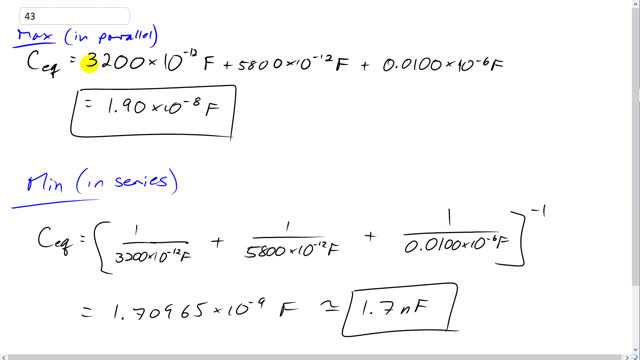 43
Max (in parallel)
Ceq = 3200 × 10⁻¹² F + 5800 × 10⁻¹² F + 0.0100 × 10⁻⁶ F
= 1.90 × 10⁻⁸ F
Min (in series)
Ceq = [ 1/(3200 × 10⁻¹² F) + 1/(5800 × 10⁻¹² F) + 1/(0.0100 × 10⁻⁶ F) ]⁻¹
= 1.70965 × 10⁻⁹ F ≃ 1.7 nF